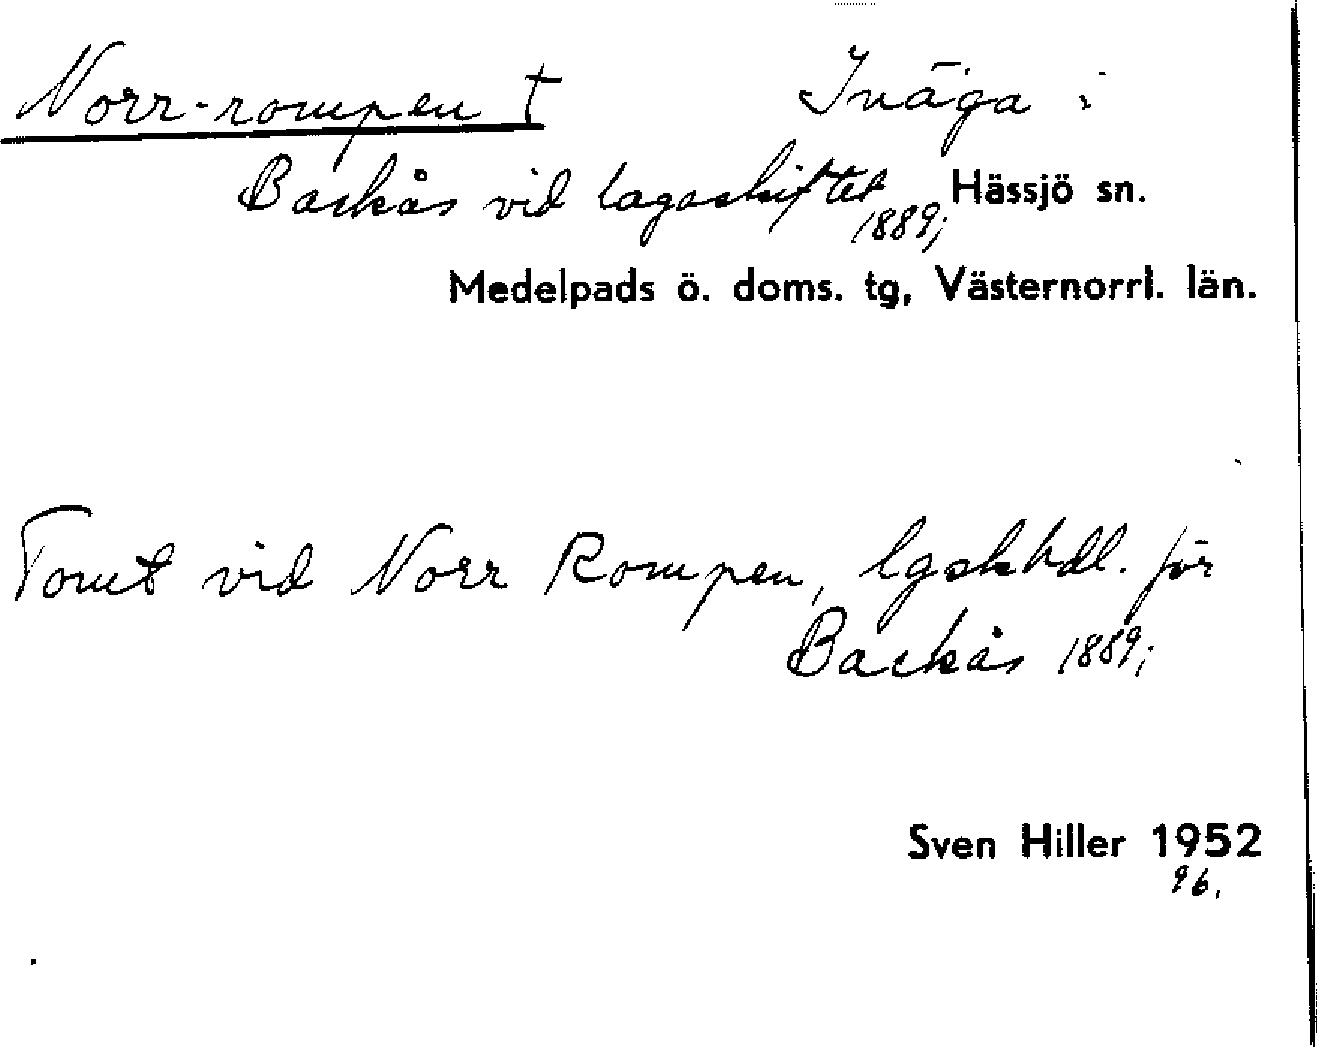 Norr-rompen † Inäga i
Backås vid lagaskiftet Hässjö sn.
1889;
Medelpads ö. doms. tg, Västernorrl. län.
Tomt vid Norr Rompen, lgskhdl. för
Backås 1889;
Sven Hiller 1952
96.